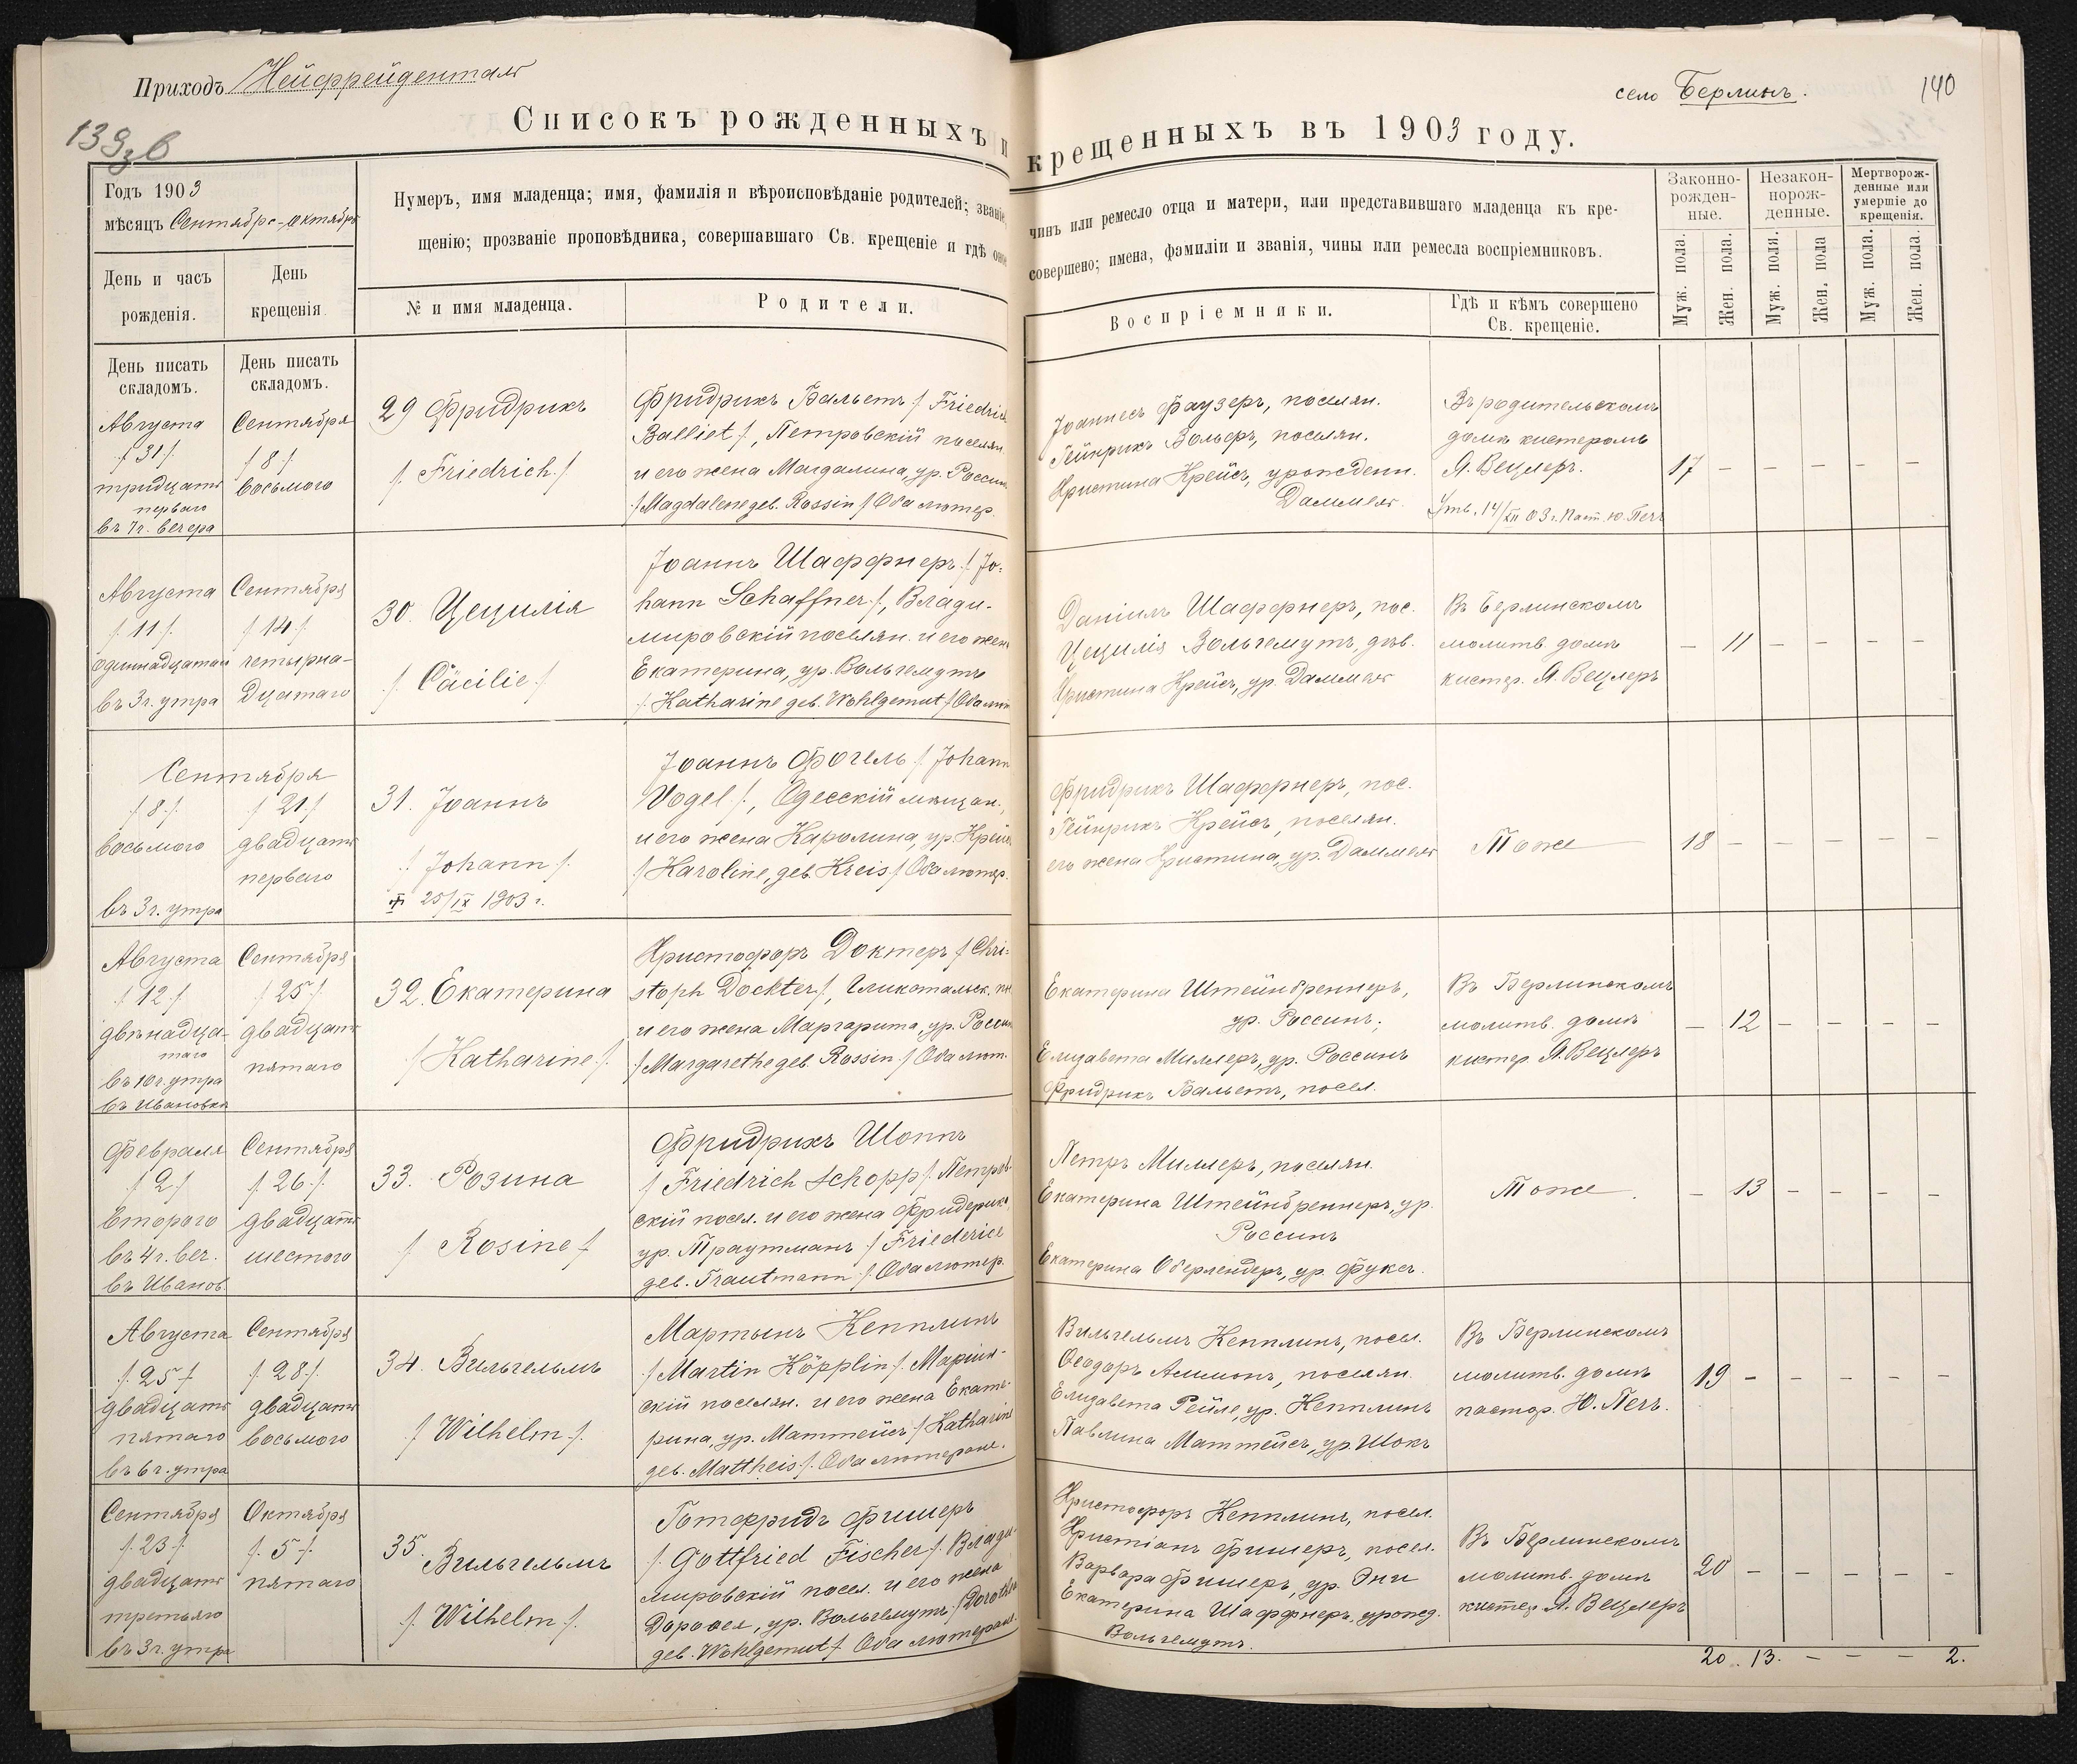 Приходъ Нейфрейденталь
село Берлинъ.
140
139зв
Списокъ рожденныхъ и крещенныхъ въ 1903 году.
Годъ 1903
мѣсяцъ Сентябрь-октябрь
Нумеръ, имя младенца; имя, фамилія и вѣроисповѣданіе родителей; званіе, чинъ или ремесло отца и матери, или представившаго младенца къ кре-
щенію; прозваніе проповѣдника, совершавшаго Св. крещеніе и гдѣ оное совершено; имена, фамиліи и званія, чины или ремесла воспріемниковъ.
Законно-
рожден-
ные.
Незакон-
норож-
денные.
Мертворож-
денные или
умершіе до
крещенія.
Муж. пола.
Жен. пола.
Муж. пола.
Жен. пола
Муж. пола.
Жен. пола.
День и часъ
рожденія.
День
крещенія
№ и имя младенца.
Родители.
Воспріемники.
Гдѣ и кѣмъ совершено
Св. крещеніе.
День писать
складомъ.
День писать
складомъ.
Августа
/31/.
тридцать
перваго
въ 7 ч. вечера
Сентября
/8./
восьмого
29 Фридрихъ
/. Friedrich./
Фридрихъ Бальетъ /. Friedrich
Balliet /, Петровскій поселян.
и его жена Магдалина, ур. Россинъ
/Magdalene geb. Rossin/ Оба лютер.
Іоаннесъ Фаузеръ, поселян.
Гейнрихъ Вольфъ, поселян.
Христина Крейсъ, урожденн.
Даммель.
Въ родительскомъ
домѣ кистеромъ
Я. Вецлеръ.
Утв. 14/XII 03 г. Паст. Ю. Печъ
17 – – – – –
Августа
/. 11 /.
одиннадцатаго
въ 3 ч. утра
Сентября
/. 14 /.
четырна-
дцатаго
30. Цецилія
/. Cäcilie /
Іоаннъ Шаффнеръ /. Jo-
hann Schaffner /, Влади-
мировскій поселян. и его жена
Екатерина, ур. Вольгемутъ
/. Katharine geb. Wohlgemut / Оба лют
Даніилъ Шаффнеръ, пос.
Цецилія Вольгемутъ, дѣв.
Христина Крейсъ, ур. Даммель
Въ Берлинскомъ
молитв. домѣ
кистер. Я. Вецлеръ
– 11 – – – –
Сентября
/8./
восьмого
въ 3 ч. утра
/. 21./
двадцать
перваго
31. Іоаннъ
/. Johann /.
25/IX 1903 г.
Іоаннъ Фогель /. Johann
Vogel /., Одесскій мѣщан.,
и его жена Каролина, ур. Крейсъ
/ Karoline, geb. Kreis /. Оба лютер.
Фридрихъ Шаффнеръ, пос.
Гейнрихъ Крейсъ, поселян.
его жена Христина, ур. Даммель
Тоже
18 – – – – –
Августа
/. 12 /.
двѣнадца-
таго
въ 10 ч. утра
въ Ивановкѣ
Сентября
/. 25 /.
двадцать
пятаго
32. Екатерина
/ Katharine /.
Христофоръ Доктеръ /. Chri-
stoph Dockter /,
и его жена Маргарита, ур. Россинъ
/ Margarethe geb. Rossin /. Оба лют.
Екатерина Штейнбреннеръ,
ур. Россинъ;
Елизавета Миллеръ, ур. Россинъ
Фридрихъ Бальетъ, посел.
Въ Берлинскомъ
молитв. домѣ
кистер Я. Вецлеръ
– 12 – – – –
Февраля
/. 2 /
второго
въ 4 ч. веч.
въ Иванов.
Сентября
/. 26 /.
двадцать
шестого
33. Розина
/ Rosine /
Фридрихъ Шоппъ
/ Friedrich Schopp /. Петров-
скій посел. и его жена Фридерика,
ур. Траутманъ /. Friederice
geb. Trautmann /. Оба лютер.
Петръ Миллеръ, поселян.
Екатерина Штейнбреннеръ, ур.
Россинъ
Екатерина Оберлендеръ, ур. Фуксъ.
Тоже.
– 13 – – – –
Августа
/. 25 /
двадцать
пятаго
въ 6 ч. утра
Сентября
/. 28 /.
двадцать
восьмого
34. Вильгельмъ
/ Wilhelm /.
Мартынъ Кепплинъ
/ Martin Köpplin /. Маріин-
скій поселян. и его жена Екате-
рина, ур. Маттейсъ / Katharine
geb. Mattheis /. Оба лютеране.
Вильгельмъ Кепплинъ, посел.
Ѳеодоръ Аммонъ, поселян.
Елизавета Рейле, ур. Кепплинъ
Павлина Маттейсъ, ур. Шокъ
Въ Берлинскомъ
молитв. домѣ
пастор. Ю. Печъ.
19 – – – – –
Сентября
/. 23 /
двадцать
третьяго
въ 3 ч. утра
Октября
/. 5 /.
пятаго
35. Вильгельмъ
/. Wilhelm /.
Готфридъ Фишеръ
/. Gottfried Fischer /. Влади-
мировскій посел. и его жена
Доротея, ур. Вольгемутъ / Dorothea
geb. Wohlgemut /. Оба лютеране.
Христофоръ Кепплинъ, посел.
Христіанъ Фишеръ, посел.
Варвара Фишеръ, ур. Эни
Екатерина Шаффнеръ, урожд.
Вольгемутъ.
Въ Берлинскомъ
молитв. домѣ
кистер Я. Вецлеръ
20 – – – – –
20. 13. – – – 2.